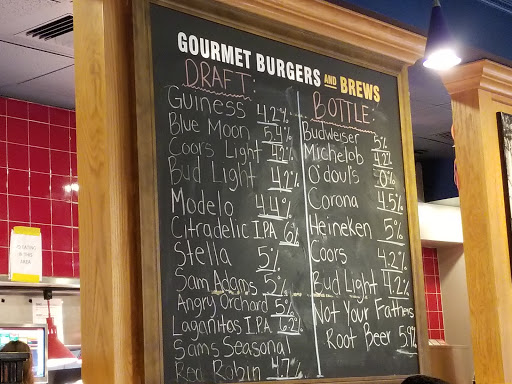 GOURMET BURGERS AND BREWS
DRAFT:
Guiness 4.2%
Blue Moon 5.4%
Coors Light 4.2%
Bud Light 4.2%
Modelo 4.4%
Citradelic IPA 6%
Stella 5%
Sam Adams 5%
Angry Orchard 5%
Laganitas IPA 6.2%
Sams Seasonal
Red Robin 4.7%
BOTTLE:
Budweiser 5%
Michelob 4.2%
O'douls 0%
Corona 4.5%
Heineken 5%
Coors 4.2%
Bud Light 4.2%
Not Your Fathers
Root Beer 5.9%